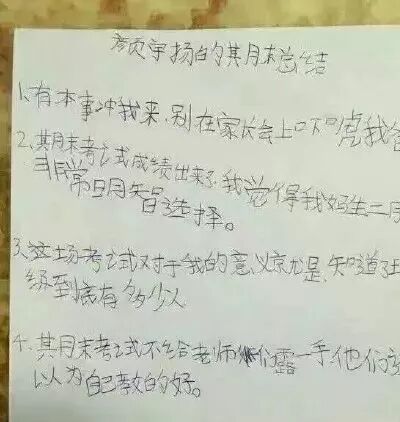 颜宇扬的期末总结
1.有本事冲我来,别在家长会上吓唬我爸
2.期末考试成绩出来了,我觉得我妈生二
非常明智选择。
3.这场考试对于我的意义就是,知道了
级到底有多少人
4.期末考试不给老师们露一手,他们
以为自己教的好。